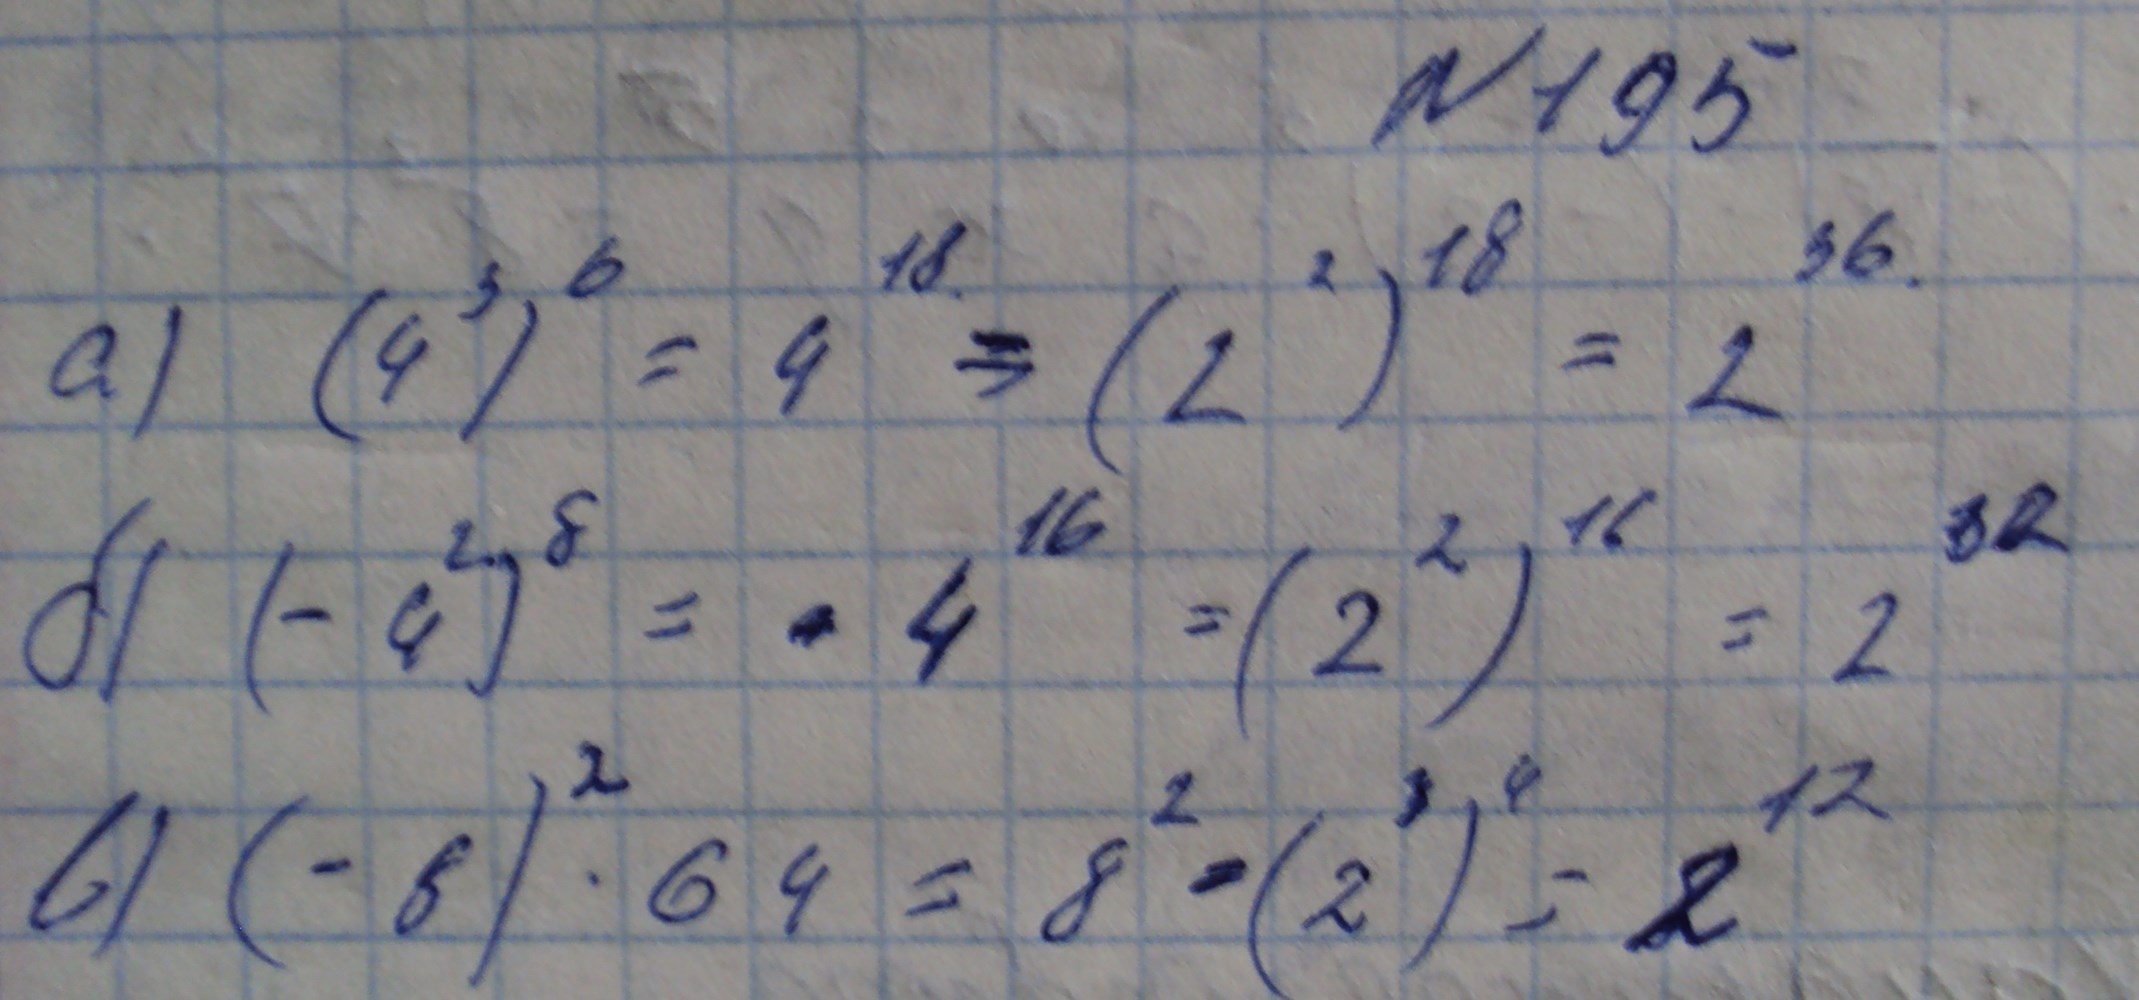 №195
а) (4³)⁶ = 4¹⁸ = (2²)¹⁸ = 2³⁶.
б) (-4²)⁸ = 4¹⁶ = (2²)¹⁶ = 2³²
в) (-8)² · 64 = 8² - (2³)⁴ = 2¹²